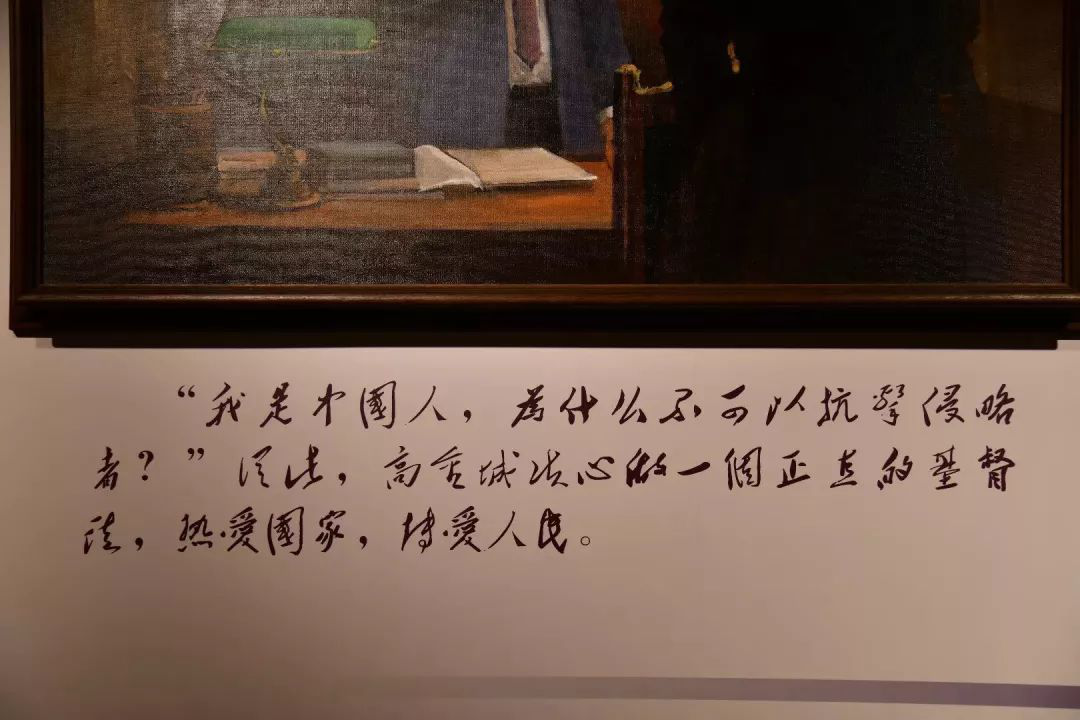 “我是中國人，為什么不可以抗擊侵略
者？”從此，高金城决心做一個正直的基督
徒，热愛國家，博愛人民。